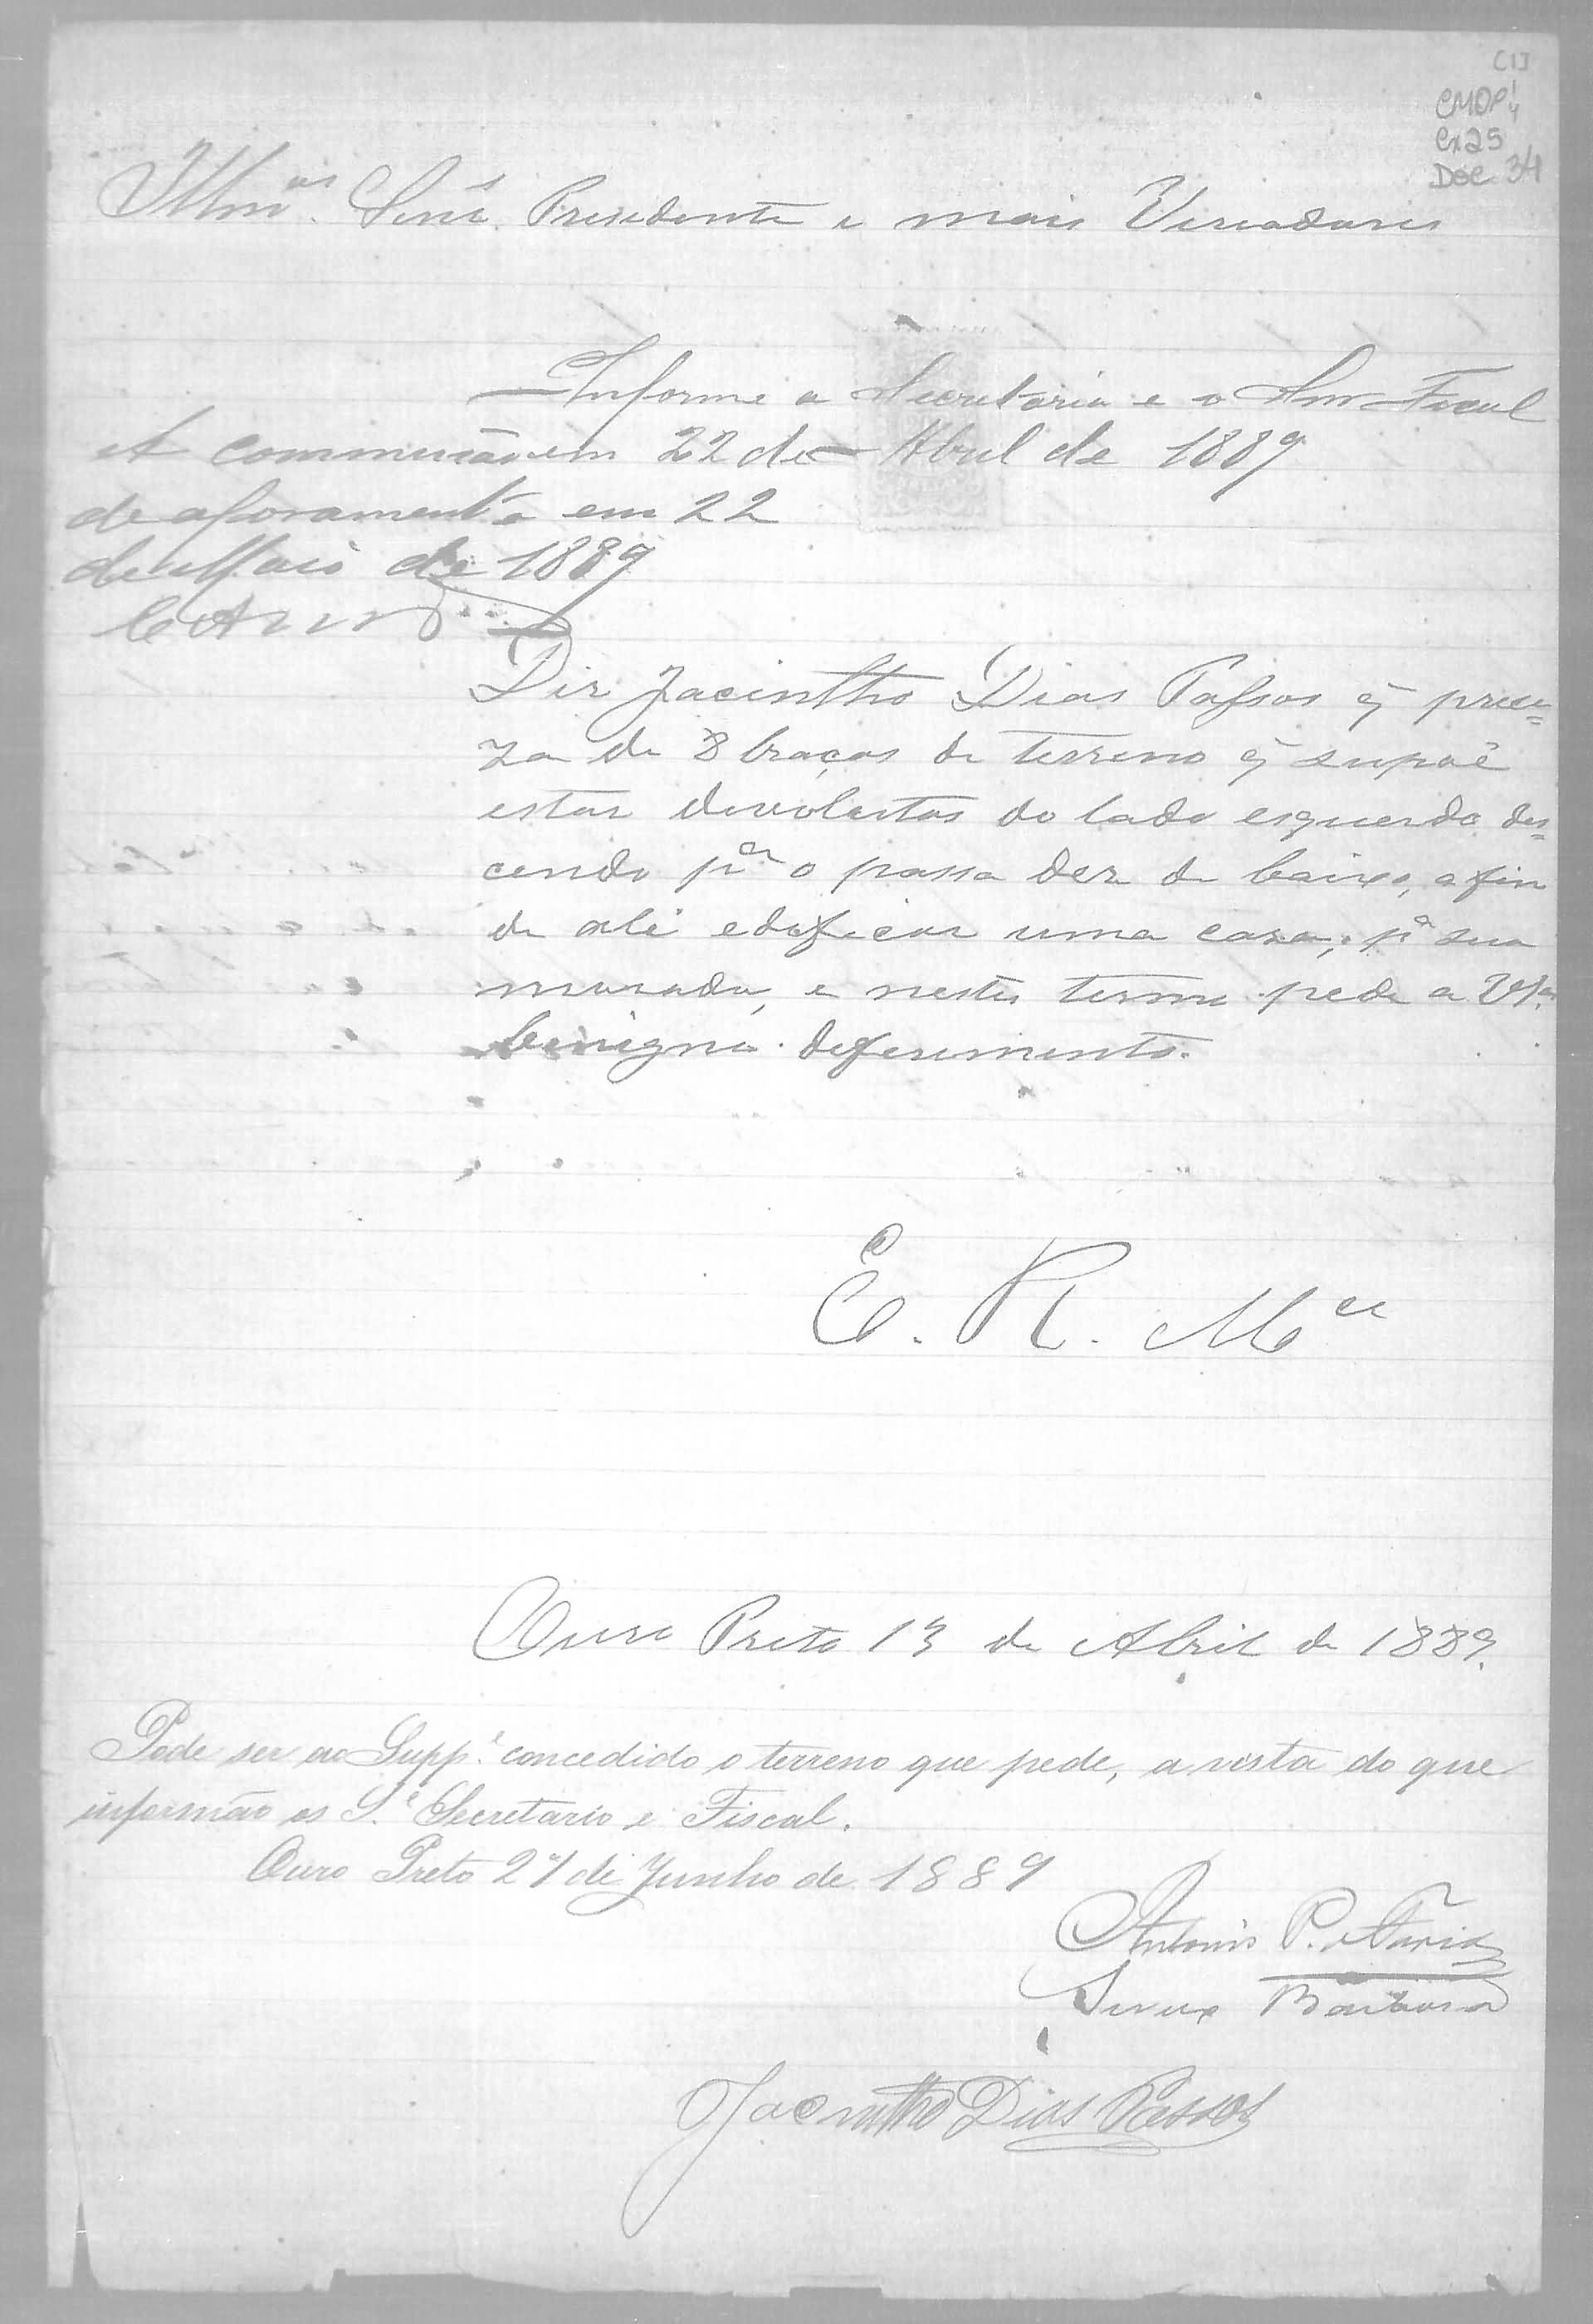 [1]
CMOP
Cx25
Doc 34
Illmos Snrs Presidente e mais Vereadores
Informe a Secretaria e o Snr Fiscal
em 22 de Abril de 1889
A commissão
de aforamento em 22
de Maio de 1889
Diz Jacintho Dias Passos q̃ preci=
za de 8 braças de terreno q̃ supoê
estar devolutas do lado esquerdo des=
cendo pa o passa dez de baixo, a fim
de ali edificar uma caza, pa sua
morada, e nestes termo pede a VSas
benigno deferimento.
E. R. Mce
Ouro Preto 13 de Abril de 1889.
Pode ser ao Suppe concedido o terreno que pede, a vista do que
informão os Srs Secretario e Fiscal.
Ouro Preto 27 de Junho de 1889
Antonio P. Faria
Barbosa
Jacintho Dias Passos